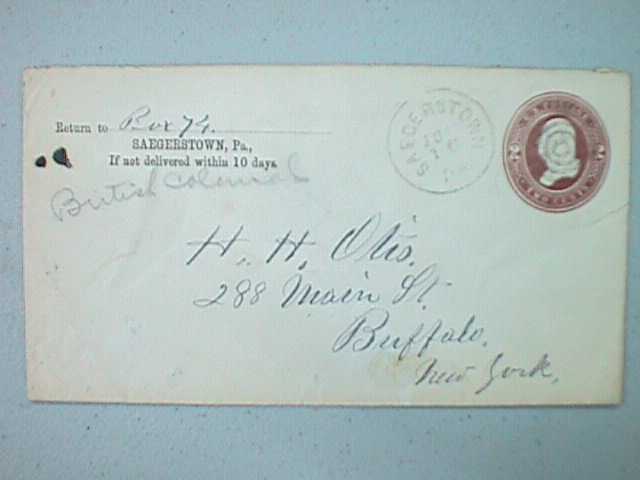 Return to Box 74.
SAEGERSTOWN, Pa.,
If not delivered within 10 days.
British Colonial
SAEGERSTOWN
H. H. Otis.
288 Main St.
Buffalo.
New York.